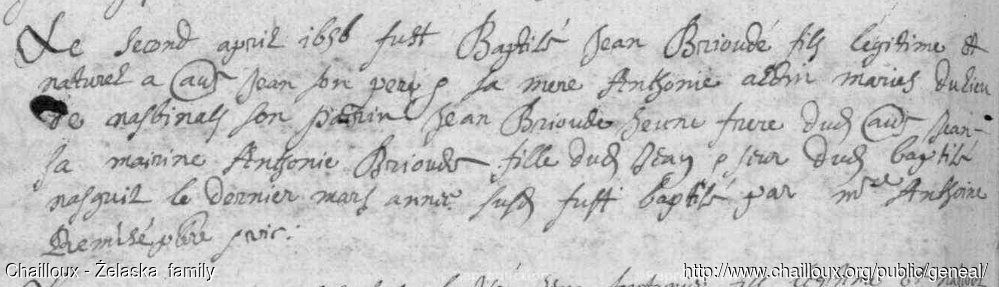 Le second april 1656 fust Baptisé Jean Brioudé fils legitime et
naturel a aud Jean son pere p sa mere Anthonie albin maries du lieu
de nasbinals son parrin Jean Brioude jeune frere dud aud Jean
sa mairine Anthonie Brioude fille dud Jean p seur dud baptisé
nasquit le dernier mars annee susd fust baptisé par mre Anthoine
pbre
Chailloux - Żelaska family
http://www.chailloux.org/public/geneal/